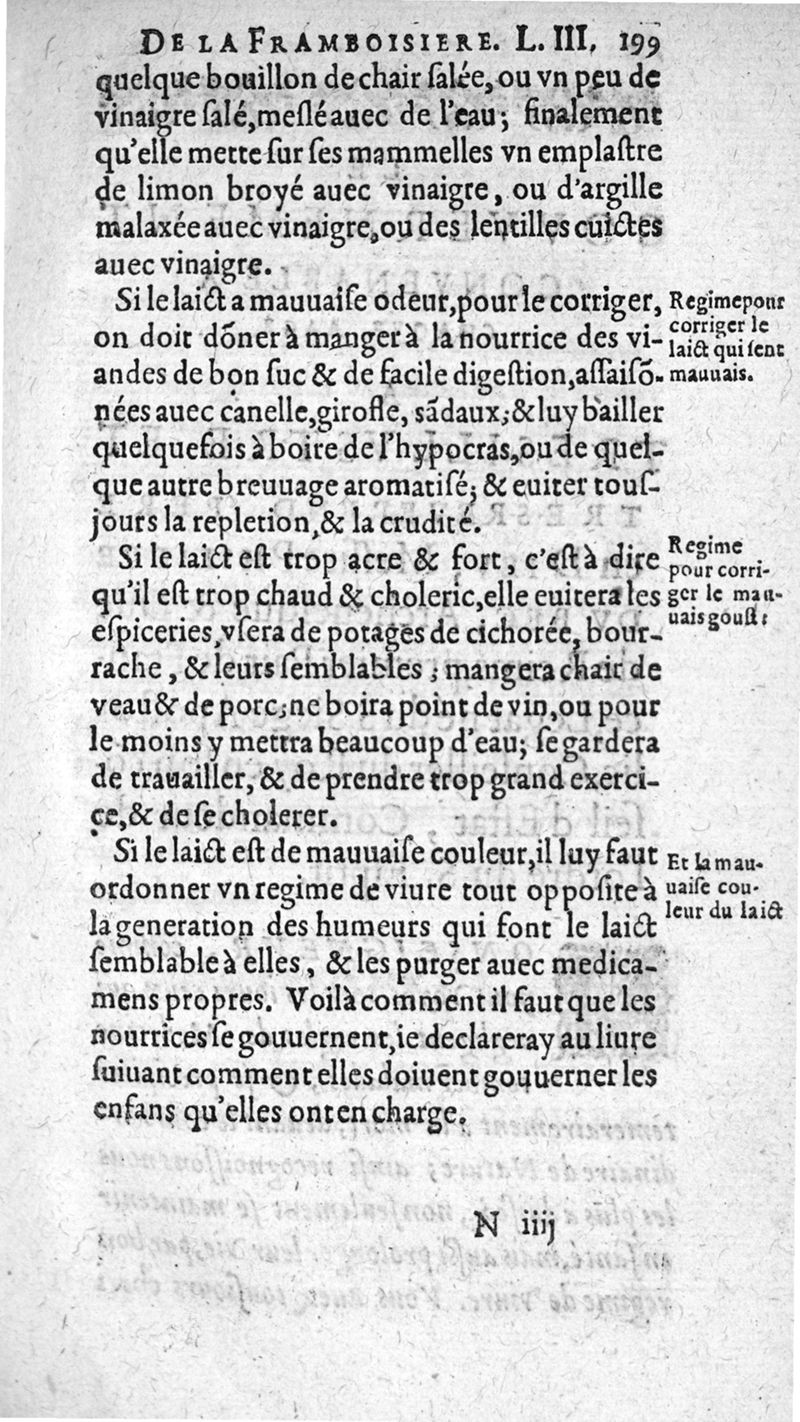 DE LA FRAMBOISIERE. L. III. 199
quelque bouillon de chair ſalée, ou vn peu de
vinaigre ſalé, meſlé auec de l'eau; finalement
qu'elle mette ſur ſes mammelles vn emplaſtre
de limon broyé auec vinaigre, ou d'argille
malaxée auec vinaigre, ou des lentilles cuictes
auec vinaigre.
Si le laict a mauuaiſe odeur, pour le corriger,
on doit dõner à manger à la nourrice des vi-
andes de bon ſuc & de facile digeſtion, aſſaiſõ-
nées auec canelle, girofle, sãdaux; & luy bailler
quelquefois à boire de l'hypocras, ou de quel-
que autre breuuage aromatiſé; & euiter touſ-
jours la repletion, & la crudité.
Regime pour
corriger le
laict qui ſent
mauuais.
Si le laict eſt trop acre & fort, c'eſt à dire
qu'il eſt trop chaud & choleric, elle euitera les
eſpiceries, vſera de potages de cichorée, bour-
rache, & leurs ſemblables; mangera chair de
veau & de porc; ne boira point de vin, ou pour
le moins y mettra beaucoup d'eau; ſe gardera
de trauailler, & de prendre trop grand exerci-
ce, & de ſe cholerer.
Regime
pour corri-
ger le mau-
uais gouſt:
Si le laict eſt de mauuaiſe couleur, il luy faut
ordonner vn regime de viure tout oppoſite à
la generation des humeurs qui font le laict
ſemblable à elles, & les purger auec medica-
mens propres. Voilà comment il faut que les
nourrices ſe gouuernent, ie declareray au liure
ſuiuant comment elles doiuent gouuerner les
enfans qu'elles ont en charge.
Et la mau-
uaiſe cou-
leur du laict
N iiij